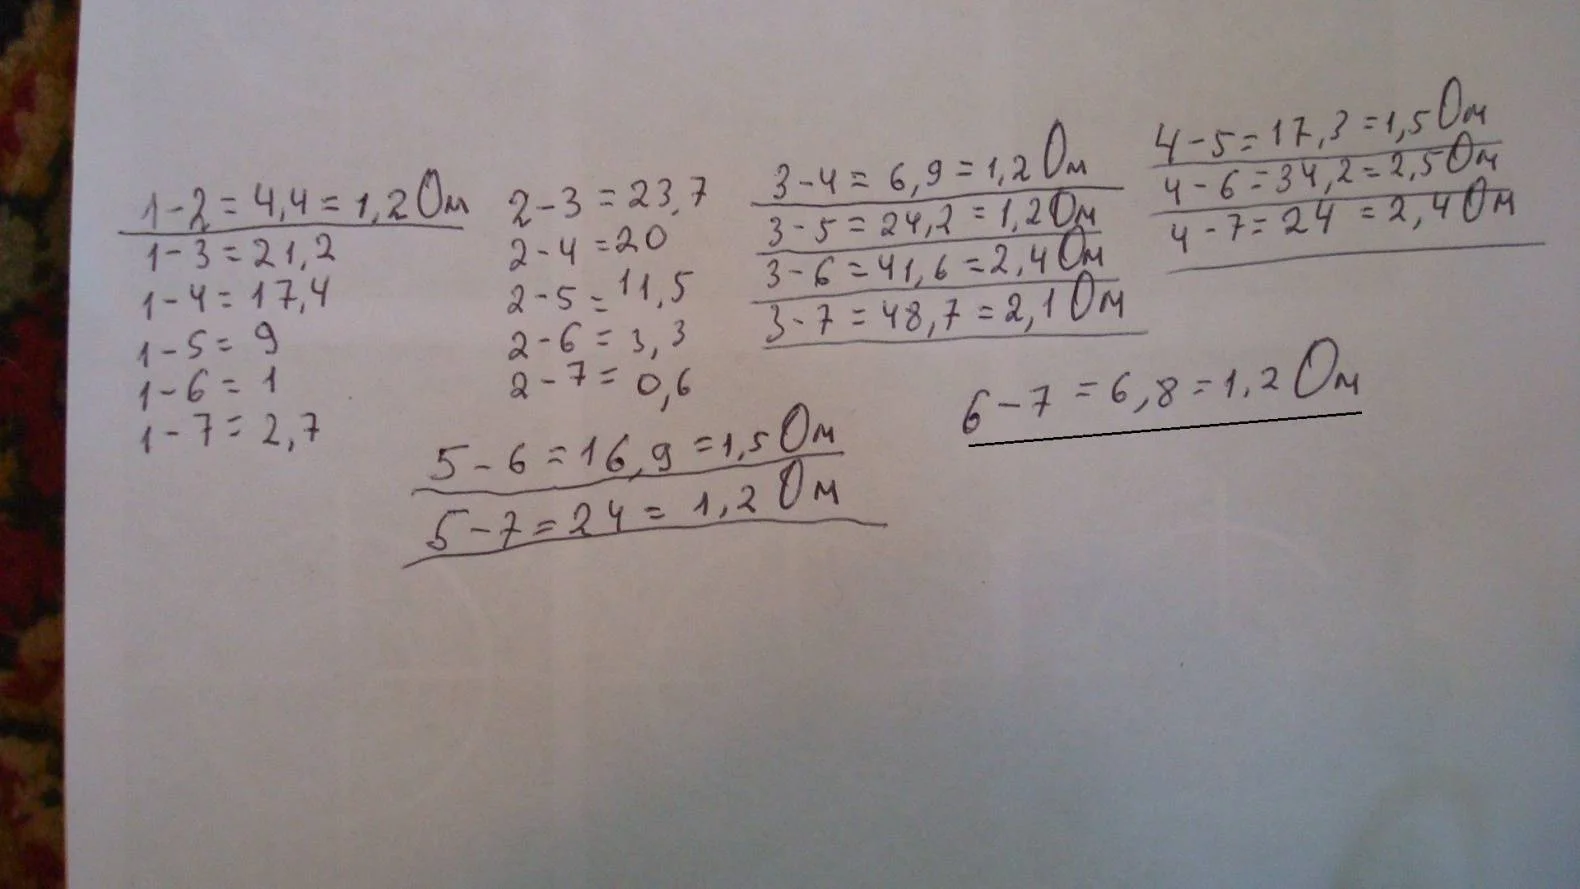 1-2 = 4,4 = 1,2 Ом
1-3 = 21,2
1-4 = 17,4
1-5 = 9
1-6 = 1
1-7 = 2,7
2-3 = 23,7
2-4 = 20
2-5 = 11,5
2-6 = 3,3
2-7 = 0,6
3-4 = 6,9 = 1,2 Ом
3-5 = 24,2 = 1,2 Ом
3-6 = 41,6 = 2,4 Ом
3-7 = 48,7 = 2,1 Ом
4-5 = 17,3 = 1,5 Ом
4-6 = 34,2 = 2,5 Ом
4-7 = 24 = 2,4 Ом
5-6 = 16,9 = 1,5 Ом
5-7 = 24 = 1,2 Ом
6-7 = 6,8 = 1,2 Ом